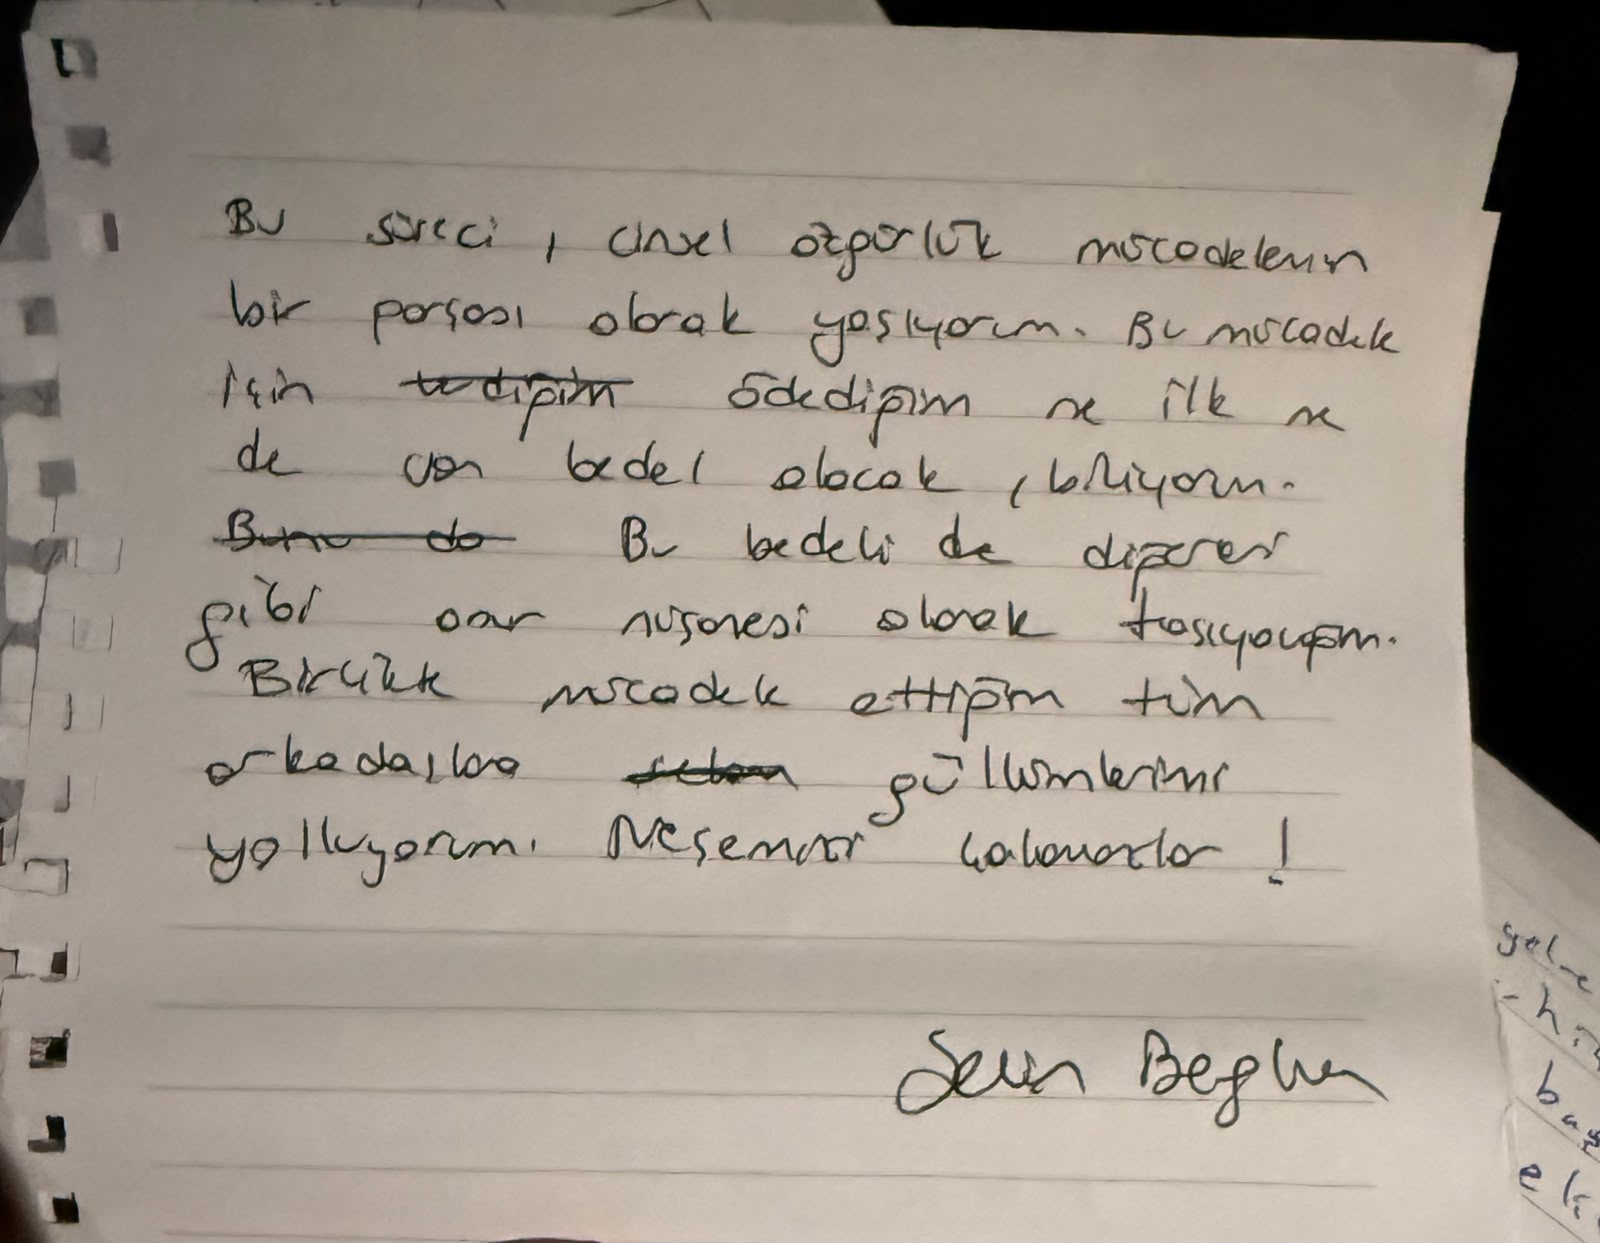 Bu süreci, cinsel özgürlük mücadelemin
bir parçası olarak yaşıyorum. Bu mücadele
için ödediğim ne ilk ne
de son bedel olacak, biliyorum.
Bunu da Bu bedeli de diğerleri
gibi onur nişanesi olarak taşıyacağım.
Birlikte mücadele ettiğim tüm
arkadaşlara selam güllümlerimi
yolluyorum. Neşemizi çalamazlar!
Beghan